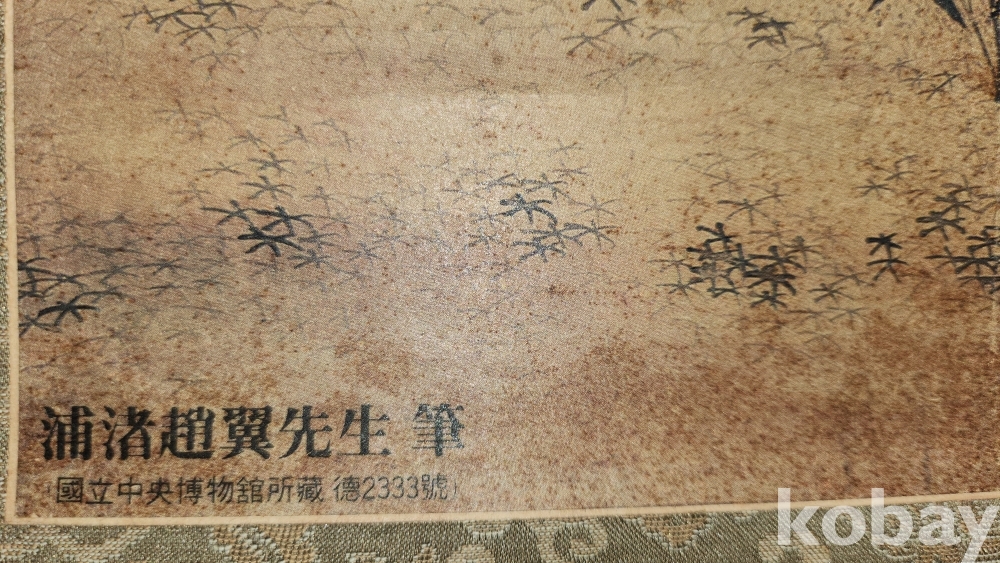 浦渚趙翼先生 筆
(國立中央博物館所藏 德2333號)
kobay